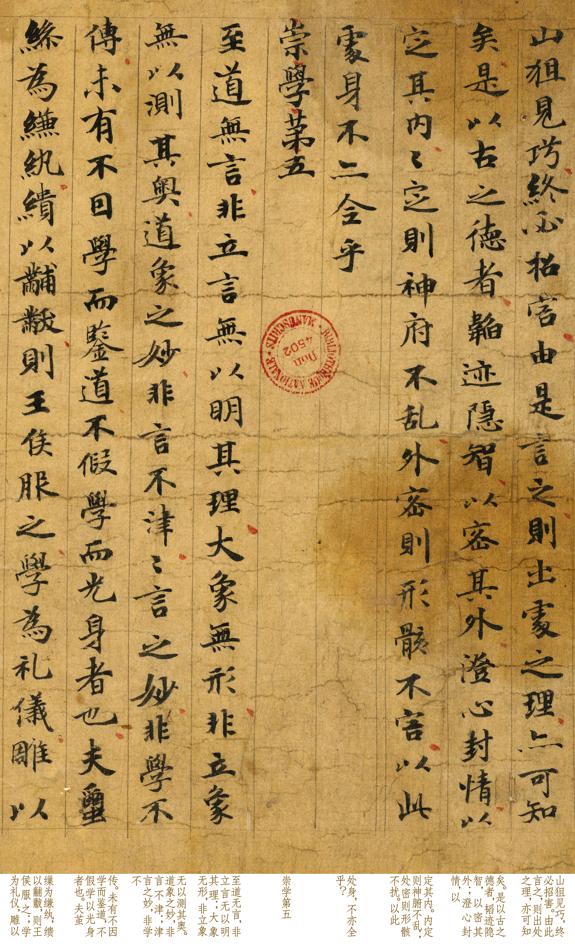 山狙見巧終必招害由是言之則出處之理亦可知
矣是以古之德者韜迹隱智以密其外澄心封情以
定其内〻定則神府不乱外密則形骸不害以此
處身不亦全乎
崇學第五
至道無言非立言無以明其理大象無形非立象
無以測其奥道象之妙非言不津〻言之妙非學不
傳未有不因學而鑒道不假學而光身者也夫蠒
絲為縑紈繢以黼黻則王侯服之學為礼儀雕以
BIBLIOTHÈQUE NATIONALE MANUSCRITS
4502
山狙见巧，终
必招害，由此
言之，则出处
之理，亦可知
矣。是以古之
德者，韬迹隐
智，以密其
外；澄心封
情，以
定其内。内定
则神腑不乱，
处密则形骸
不扰。以此
处身，不亦全
乎？
崇学第五
至道无言，非
立言无以明
其理；大象
无形，非立象
无以测其奥。
道象之妙，非
言不津；津
言之妙，非学
不
传。未有不因
学而鉴道，不
假学以光身
者也。夫茧
缲为缣纨，缋
以黼黻，则王
侯服之；学
为礼仪，雕以